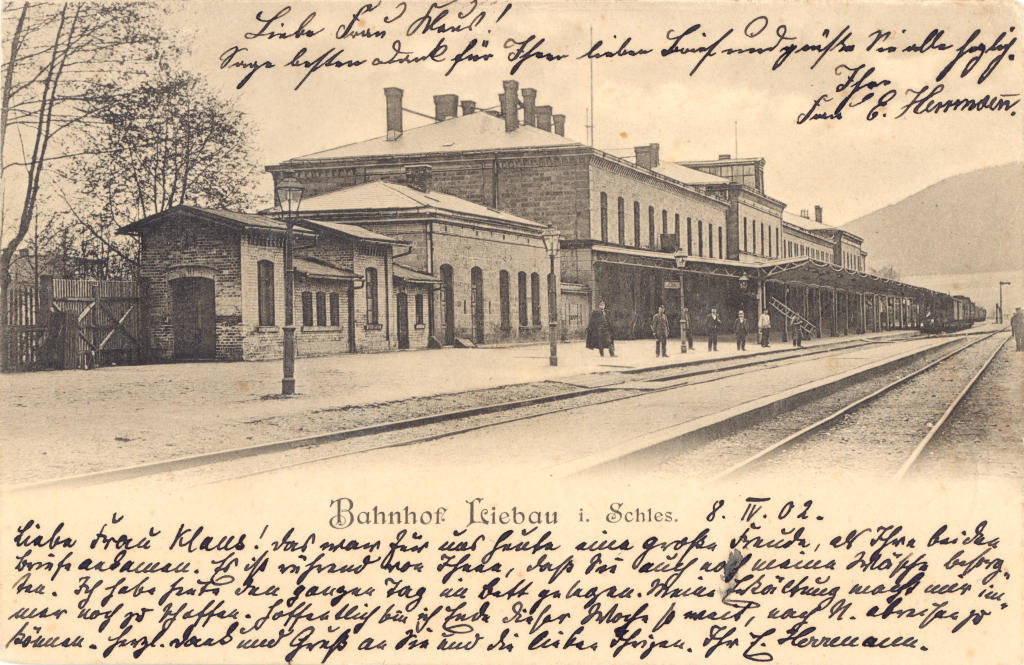 Liebe Frau Klaus!
Sage besten Dank für Ihren lieben Brief und grüße Sie alle hzglich.
Ihre
Frau E. Herrmann.
Bahnhof Liebau i. Schles. 8. IV. 02.
Liebe Frau Klaus! Das war für uns heute eine große Freude, als Ihre beiden
Briefe ankamen. Es ist rührend von Ihnen, daß Sie auch noch meine Wäsche besorg-
ten. Ich habe heute den ganzen Tag im Bett gelegen. Meine Erkältung macht mir im-
mer noch zu schaffen. Hoffentlich bin ich Ende dieser Woche so weit, nach N. abreisen zu
können. Herzl. Dank und Gruß an Sie und die lieben Ihrigen. Ihr E. Herrmann.